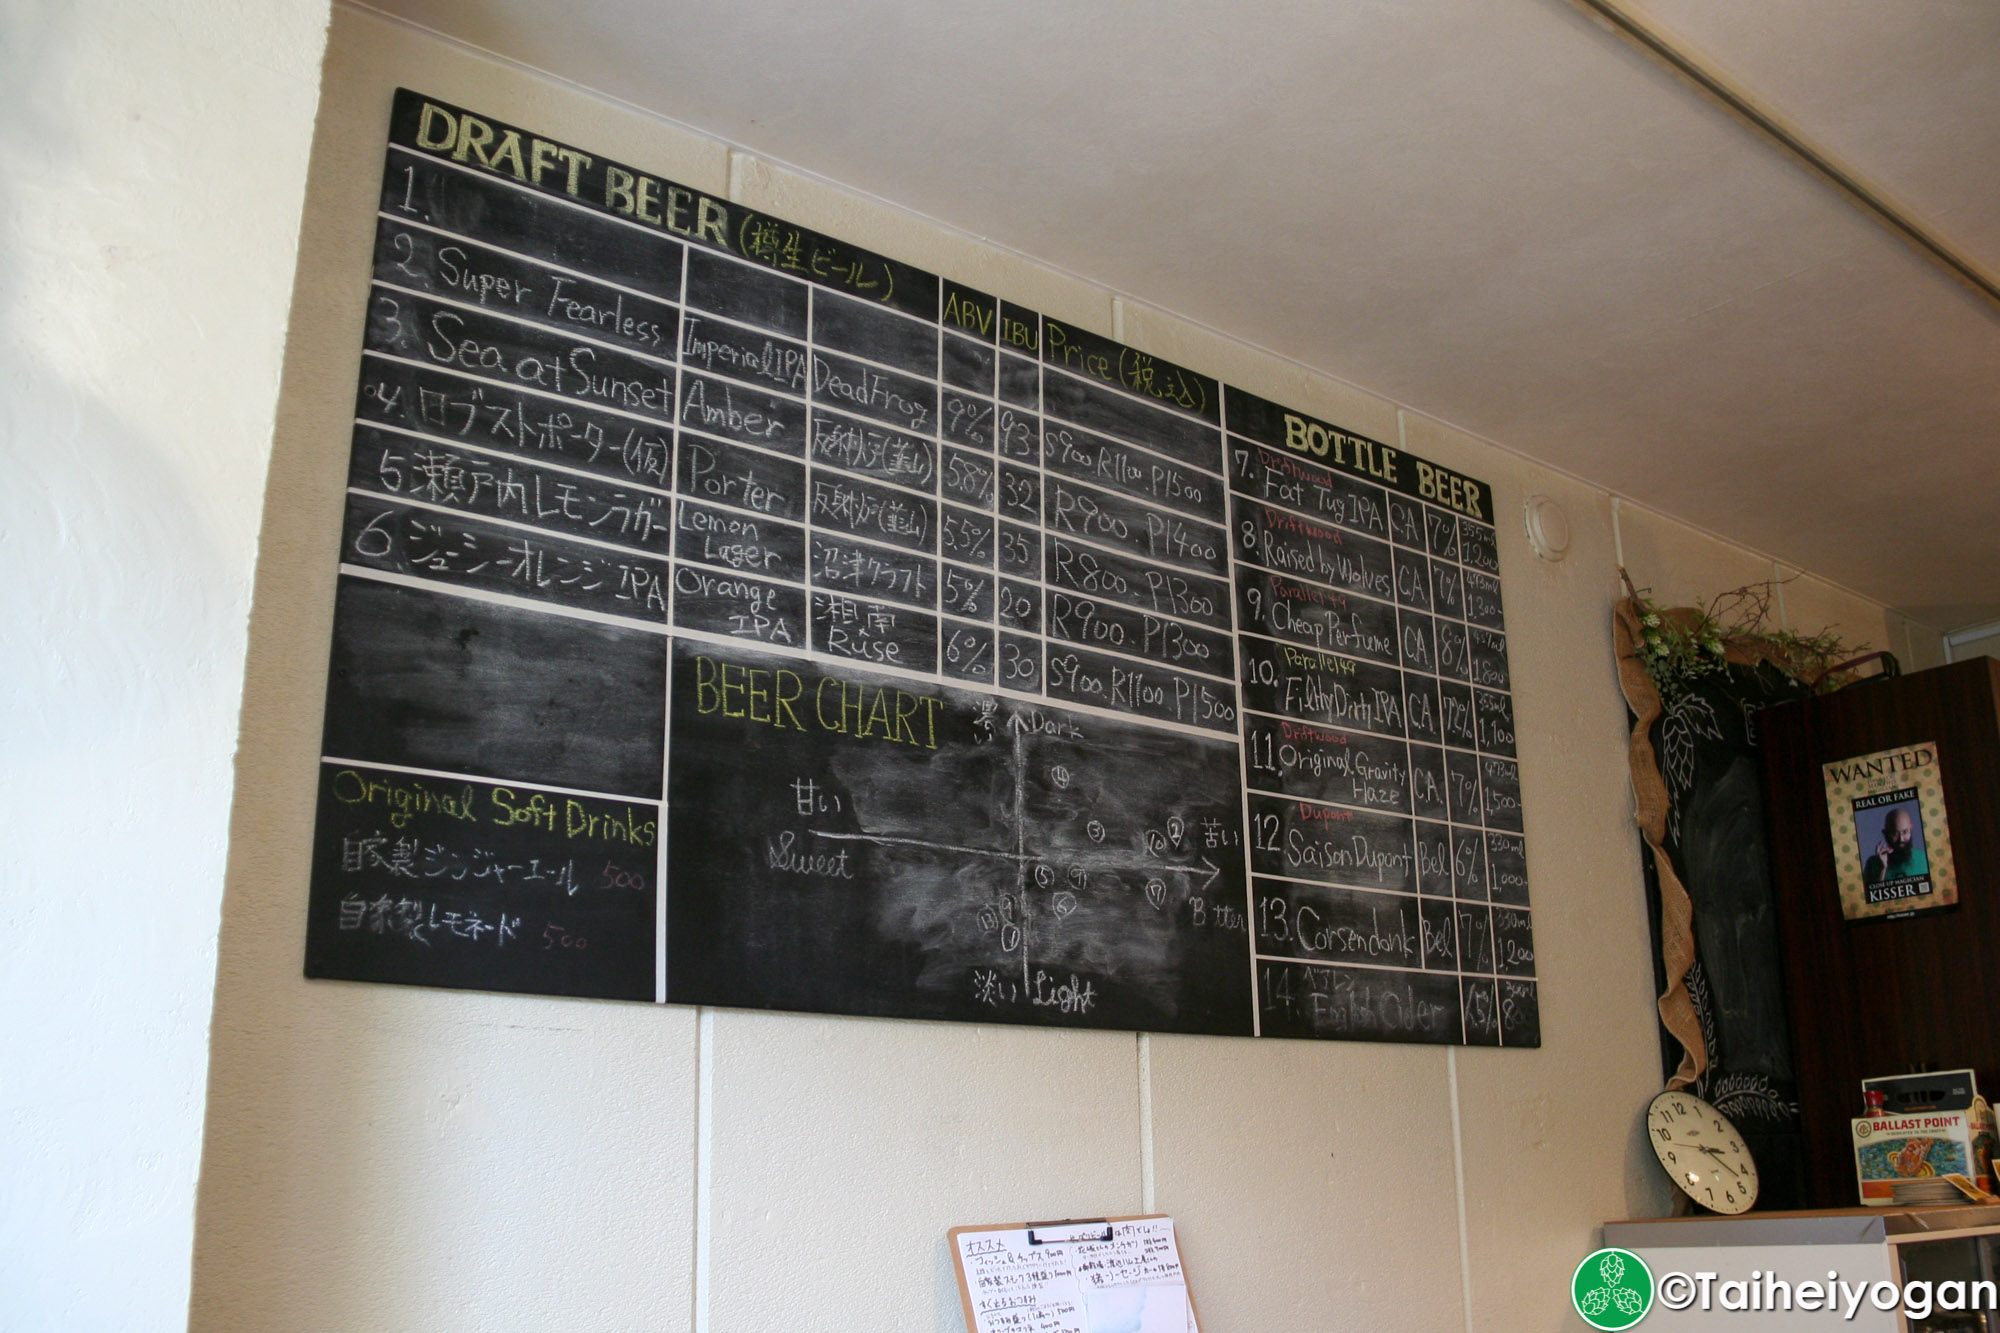 DRAFT BEER (樽生ビール) ABV IBU Price (税込)
1.
2. Super Fearless Imperial IPA Dead Frog 9% 93 S900 R1100 P1500
3. Sea at Sunset Amber 反射炉(韮山) 5.8% 32 R900. P1400
4. ロブストポーター(仮) Porter 反射炉(韮山) 5.5% 35 R800. P1300
5. 瀬戸内レモンラガー Lemon Lager 沼津クラフト 5% 20 R900. P1300
6. ジューシーオレンジIPA Orange IPA 湘南 Ruse 6% 30 S900. R1100. P1500
BOTTLE BEER
7. Driftwood
Fat Tug IPA CA. 7% 355ml 1,200
8. Driftwood
Raised by Wolves CA. 7% 473ml 1,300-
9. Parallel 49
Cheap Perfume CA. 8% 1,800
10. Parallel 49
Filthy Dirty IPA CA. 7.2% 355ml 1,100
11. Driftwood
Original Gravity Haze CA. 7% 473ml 1,500-
12 Dupont
Saison Dupont Bel 6% 330ml 1,000-
13. Corsendonk Bel 7% 330ml 1,200
14. English Cider
BEER CHART
濃い Dark
甘い
Sweet
苦い
Bitter
淡い Light
④
③
⑩ ②
⑤ ⑪
⑦
⑨ ⑥
⑬
①
Original Soft Drinks
自家製ジンジャーエール 500
自家製レモネード 500
WANTED
REAL OR FAKE
CLOSE UP MAGICIAN
KISSER
BALLAST POINT
12 1 2 3 4 5 6 7 8 9 10 11
オススメ
フィッシュ&チップス 900円
©Taiheiyogan